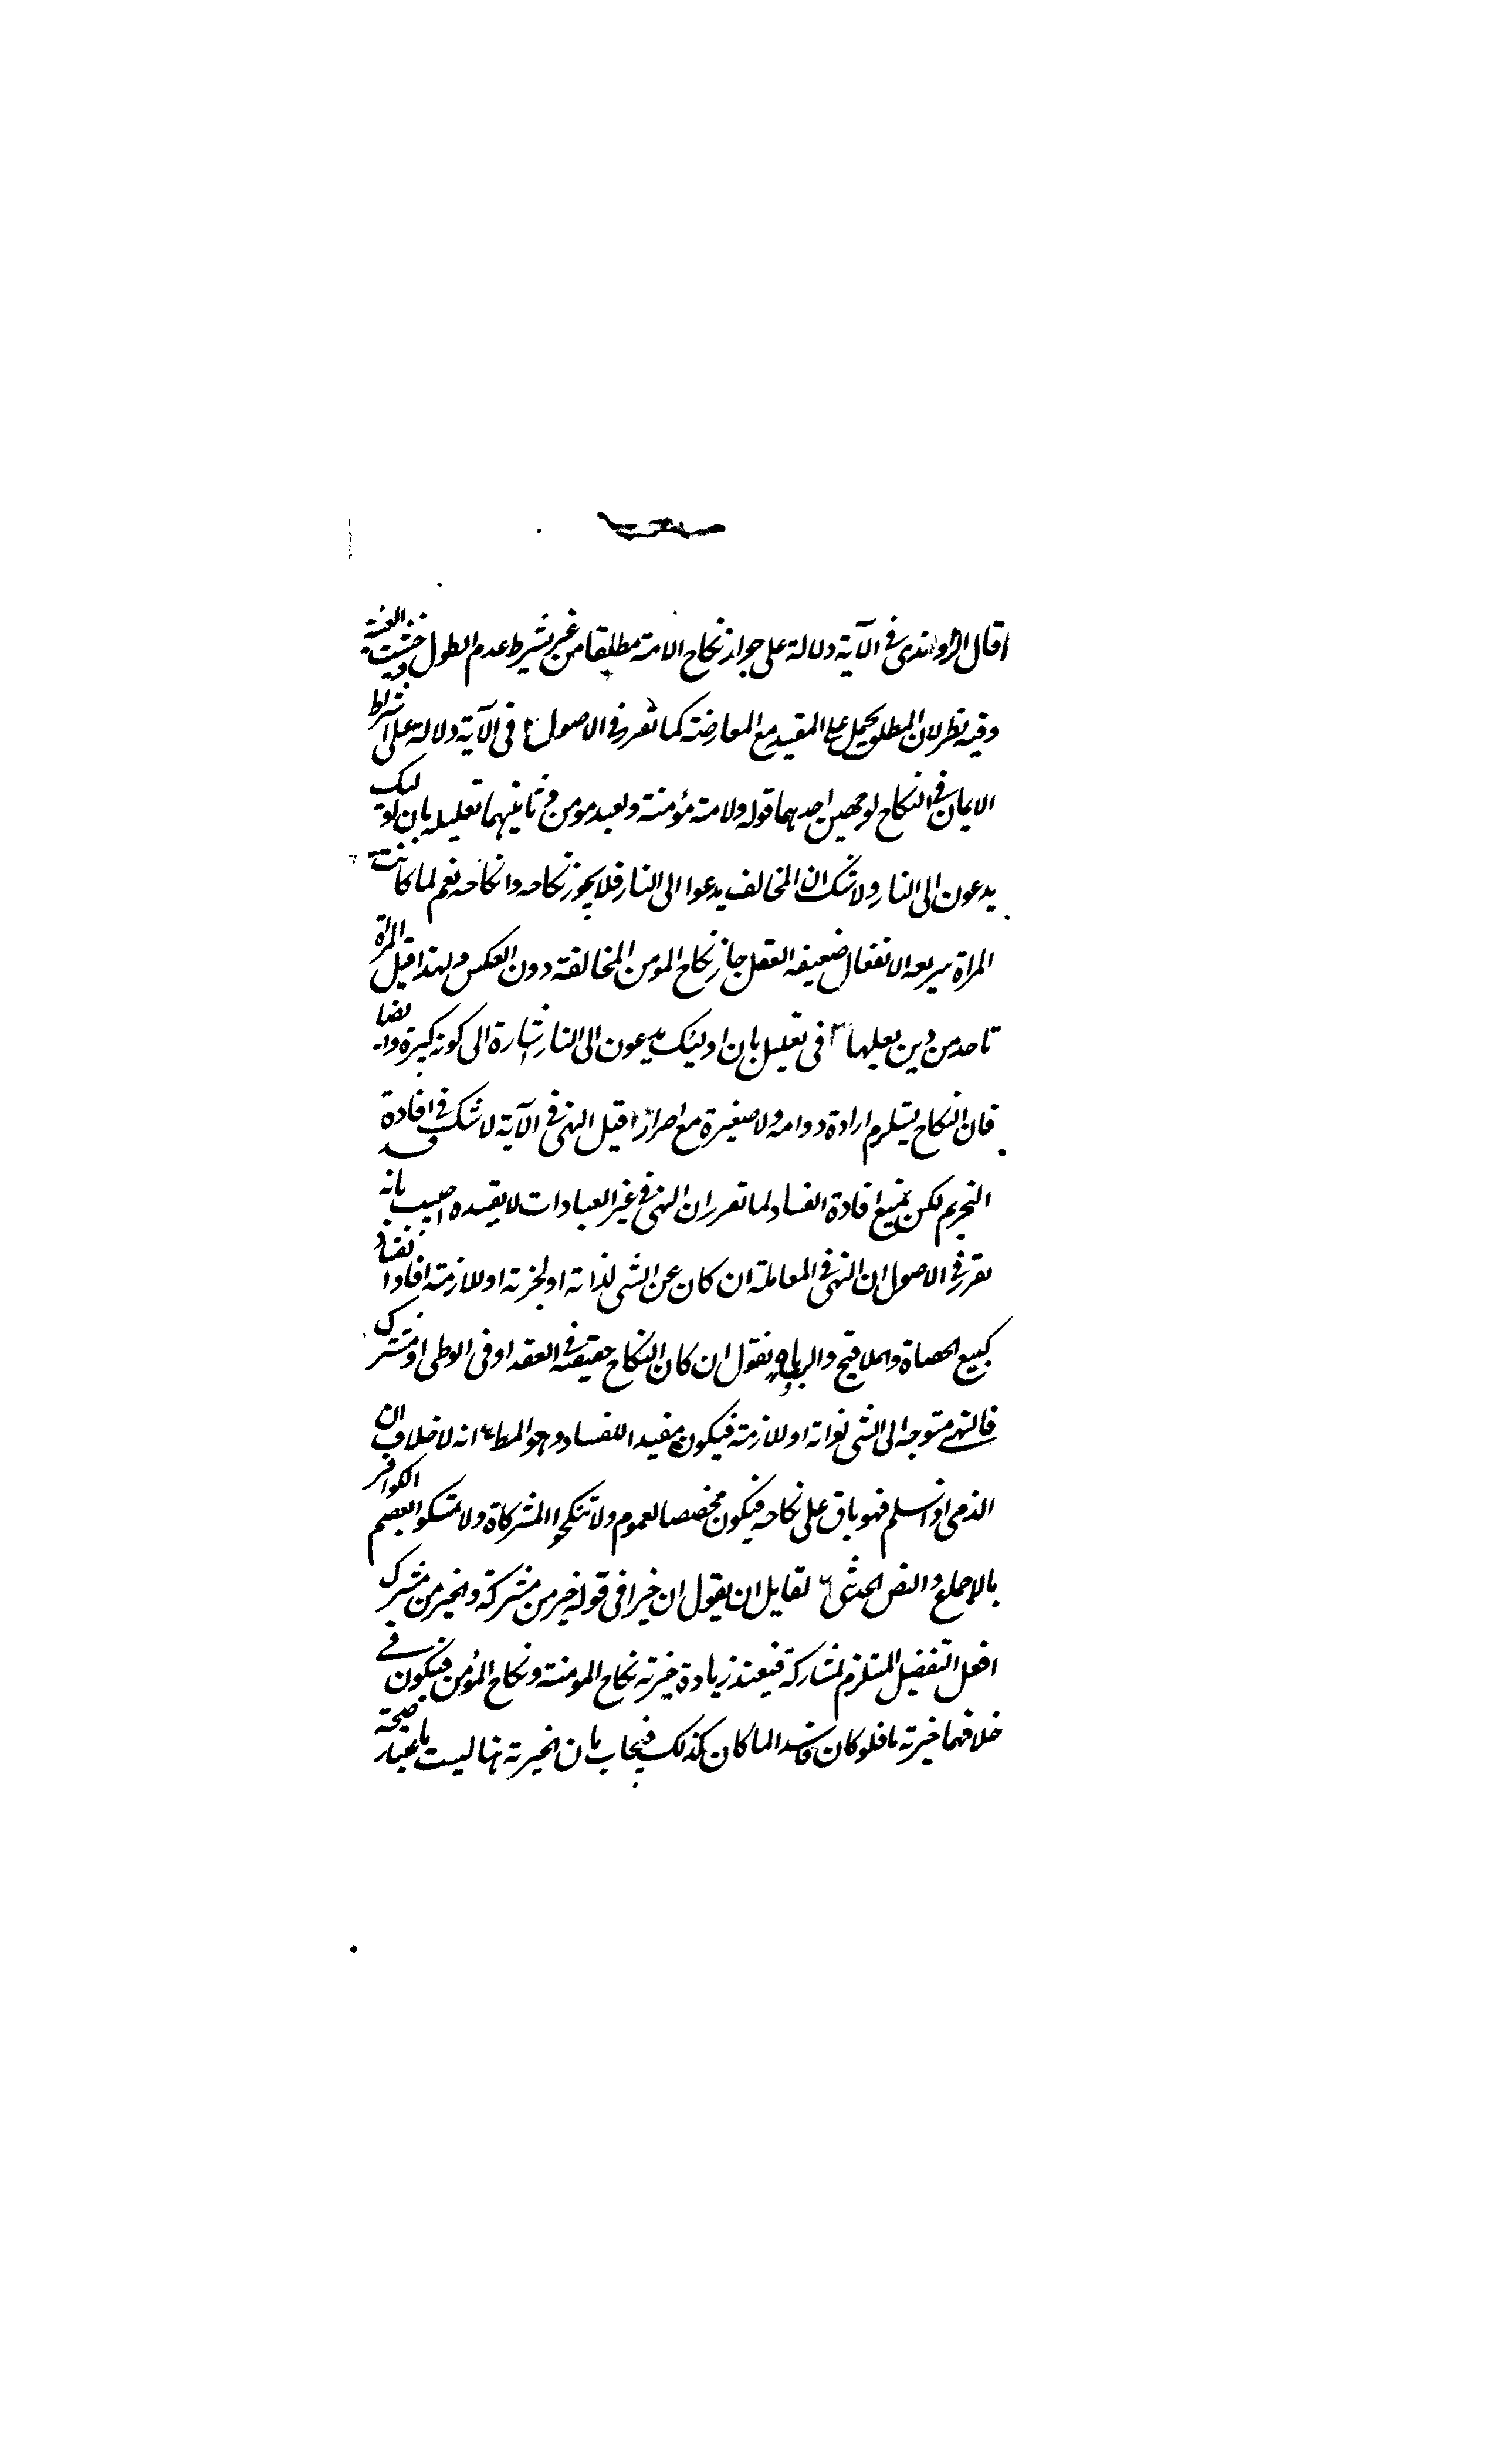 ١ قال الراوندى فى الآية دلالة على جواز نكاح الامة مطلقا من غير شرط عدم الطول وخشيت العنت
وفيه نظر لان المطلق يحمل على المقيد مع المعارضة كما تقرر فى الاصول ٢ فى الآية دلالة على اشتراط
الايمان فى النكاح لوجهين احدهما قوله ولامة مؤمنة ولعبد مومن وثانيهما تعليله بان اولئك
يدعون الى النار ولا شك ان المخالف يدعوا الى النار فلا يجوز نكاحه وانكاحه نعم لما كانت
المراة سريعه الانفعال ضعيفه العقل جاز نكاح المومن المخالفة دون العكس ولهذا قيل المراة
تاخد من دين بعلها ٣ فى تعليل بان اولئك يدعون الى النار اشارة الى كونه كبيرة وايضا
فان النكاح يستلزم ارادة دوامه ولا صغيرة مع اصرار ٤ قيل النهى فى الآية لا شك فى افادة
التحريم لكن يمنع افادة الفساد لما تقرر ان النهى فى غير العبادات لا يفيده اجيب بانه قد
تقرر فى الاصول ان النهى فى المعاملة ان كان عن الشى لذاته او لجزئه او للازمته افاد الفساد
كبيع الحصاة والملاقيح والربا وح نقول ان كان النكاح حقيقة فى العقد او فى الوطى او مشترك
فالنهى متوجه الى الشى لذاته او للازمته فيكون مفيدا للفساد وهو المط ٥ انه لا خلاف ان
الذمى اذا اسلم فهو باق على نكاحه فيكون مخصصا لعموم ولا تنكحوا المشركاة ولا تمسكوا بعصم الكوافر
بالاجماع والنص الحدثى ٦ لقايل ان يقول ان خيرا فى قوله خير من مشركة وخير من مشرك
افعل التفضيل المستلزم لمشاركة فيفيد زيادة خيرته نكاح المومنة ونكاح المؤمن فيكون فى
خلافهما خيرته ما فلو كان فاسدا لما كان كذلك فيجاب بان الخيرته هنا ليست باعتبار صحته